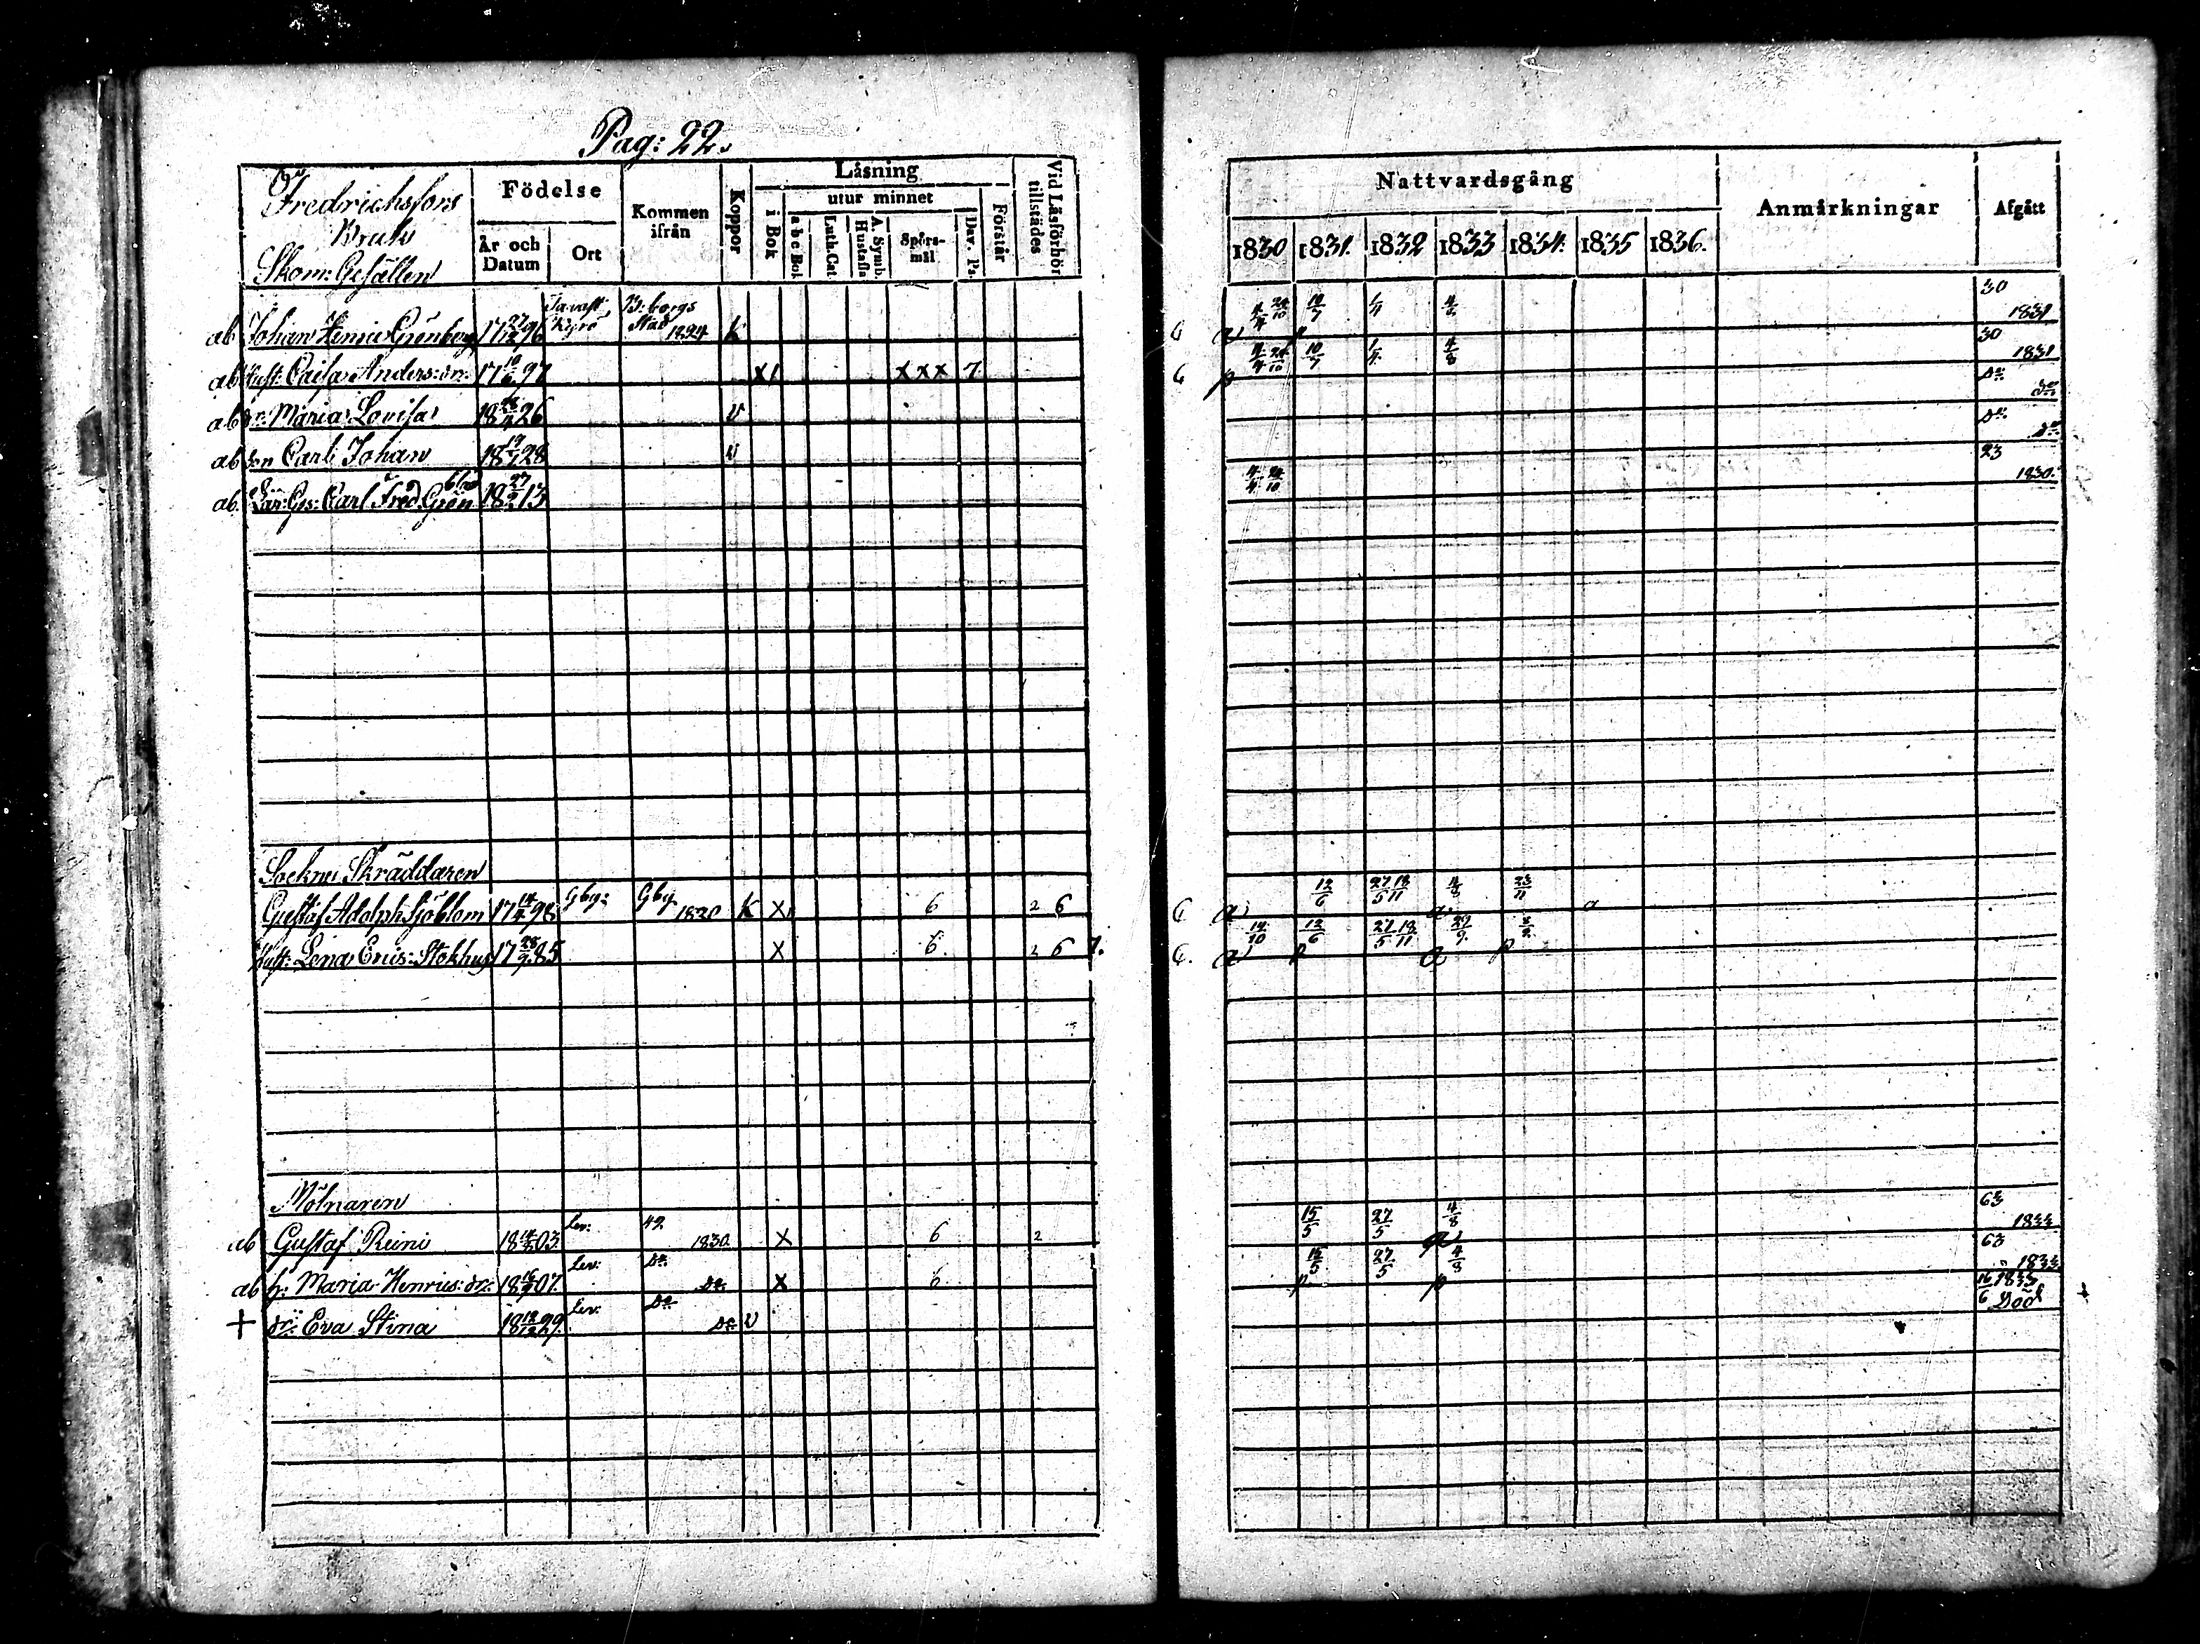 Pag: 22.
Fredrichsfors
Bruk
Skom: Gesällen
Födelse
År och Datum
Ort
Kommen ifrån
Koppor
Läsning
i Bok
utur minnet
a b c Bok.
Luth. Cat.
A. Symb. Hustafla
Spörs-mål
Dav. Ps.
Förstår
Vid Läsförhör tillstädes
Nattvardsgång
1830 1831. 1832 1833 1834. 1835 1836.
Anmärkningar
Afgått
ab Johan Henric Grönberg 17 27/12 96 Tavast Kyro B:borgs Stad 1824 K 4/4 24/10 10/7 1/4 4/8 30 1831
ab Hust: Caisa Anders: dr. 17 97 X 1 X X X 7 4/4 24/10 10/7 1/4 4/8 30 1831
ab dr. Maria Lovisa 18 26 v Do Do
ab son Carl Johan 18 28 v Do Do
ab. Lär: Gs: Carl Fred. Grönblad 18 27/2 13 4/4 24/10 23 1830.
Sockne Skräddaren
Gustaf Adolph Sjöblom 17 14/4 98 Gby: Gby 1830 K X 6 2 6 12/6 27/5 18/11 4/8 23/11 a
Hust: Lena Erics: Stokhus 17 85 X 6. 2 6 7. 14/10 12/6 27/5 18/11 29/9 a p a p
Mölnaren
ab Gustaf Reini 18 03. Lev: 42 1830. X 6 2 15/5 27/5 4/8 63 1833
ab h: Maria Henrics: dr. 18 07. Lev: Do Do X 6 15/5 27/5 4/8 p p 63 1833
+ dr: Eva Stina 18 12/12 29. Lev: Do Do v 16/6 1833 Död +